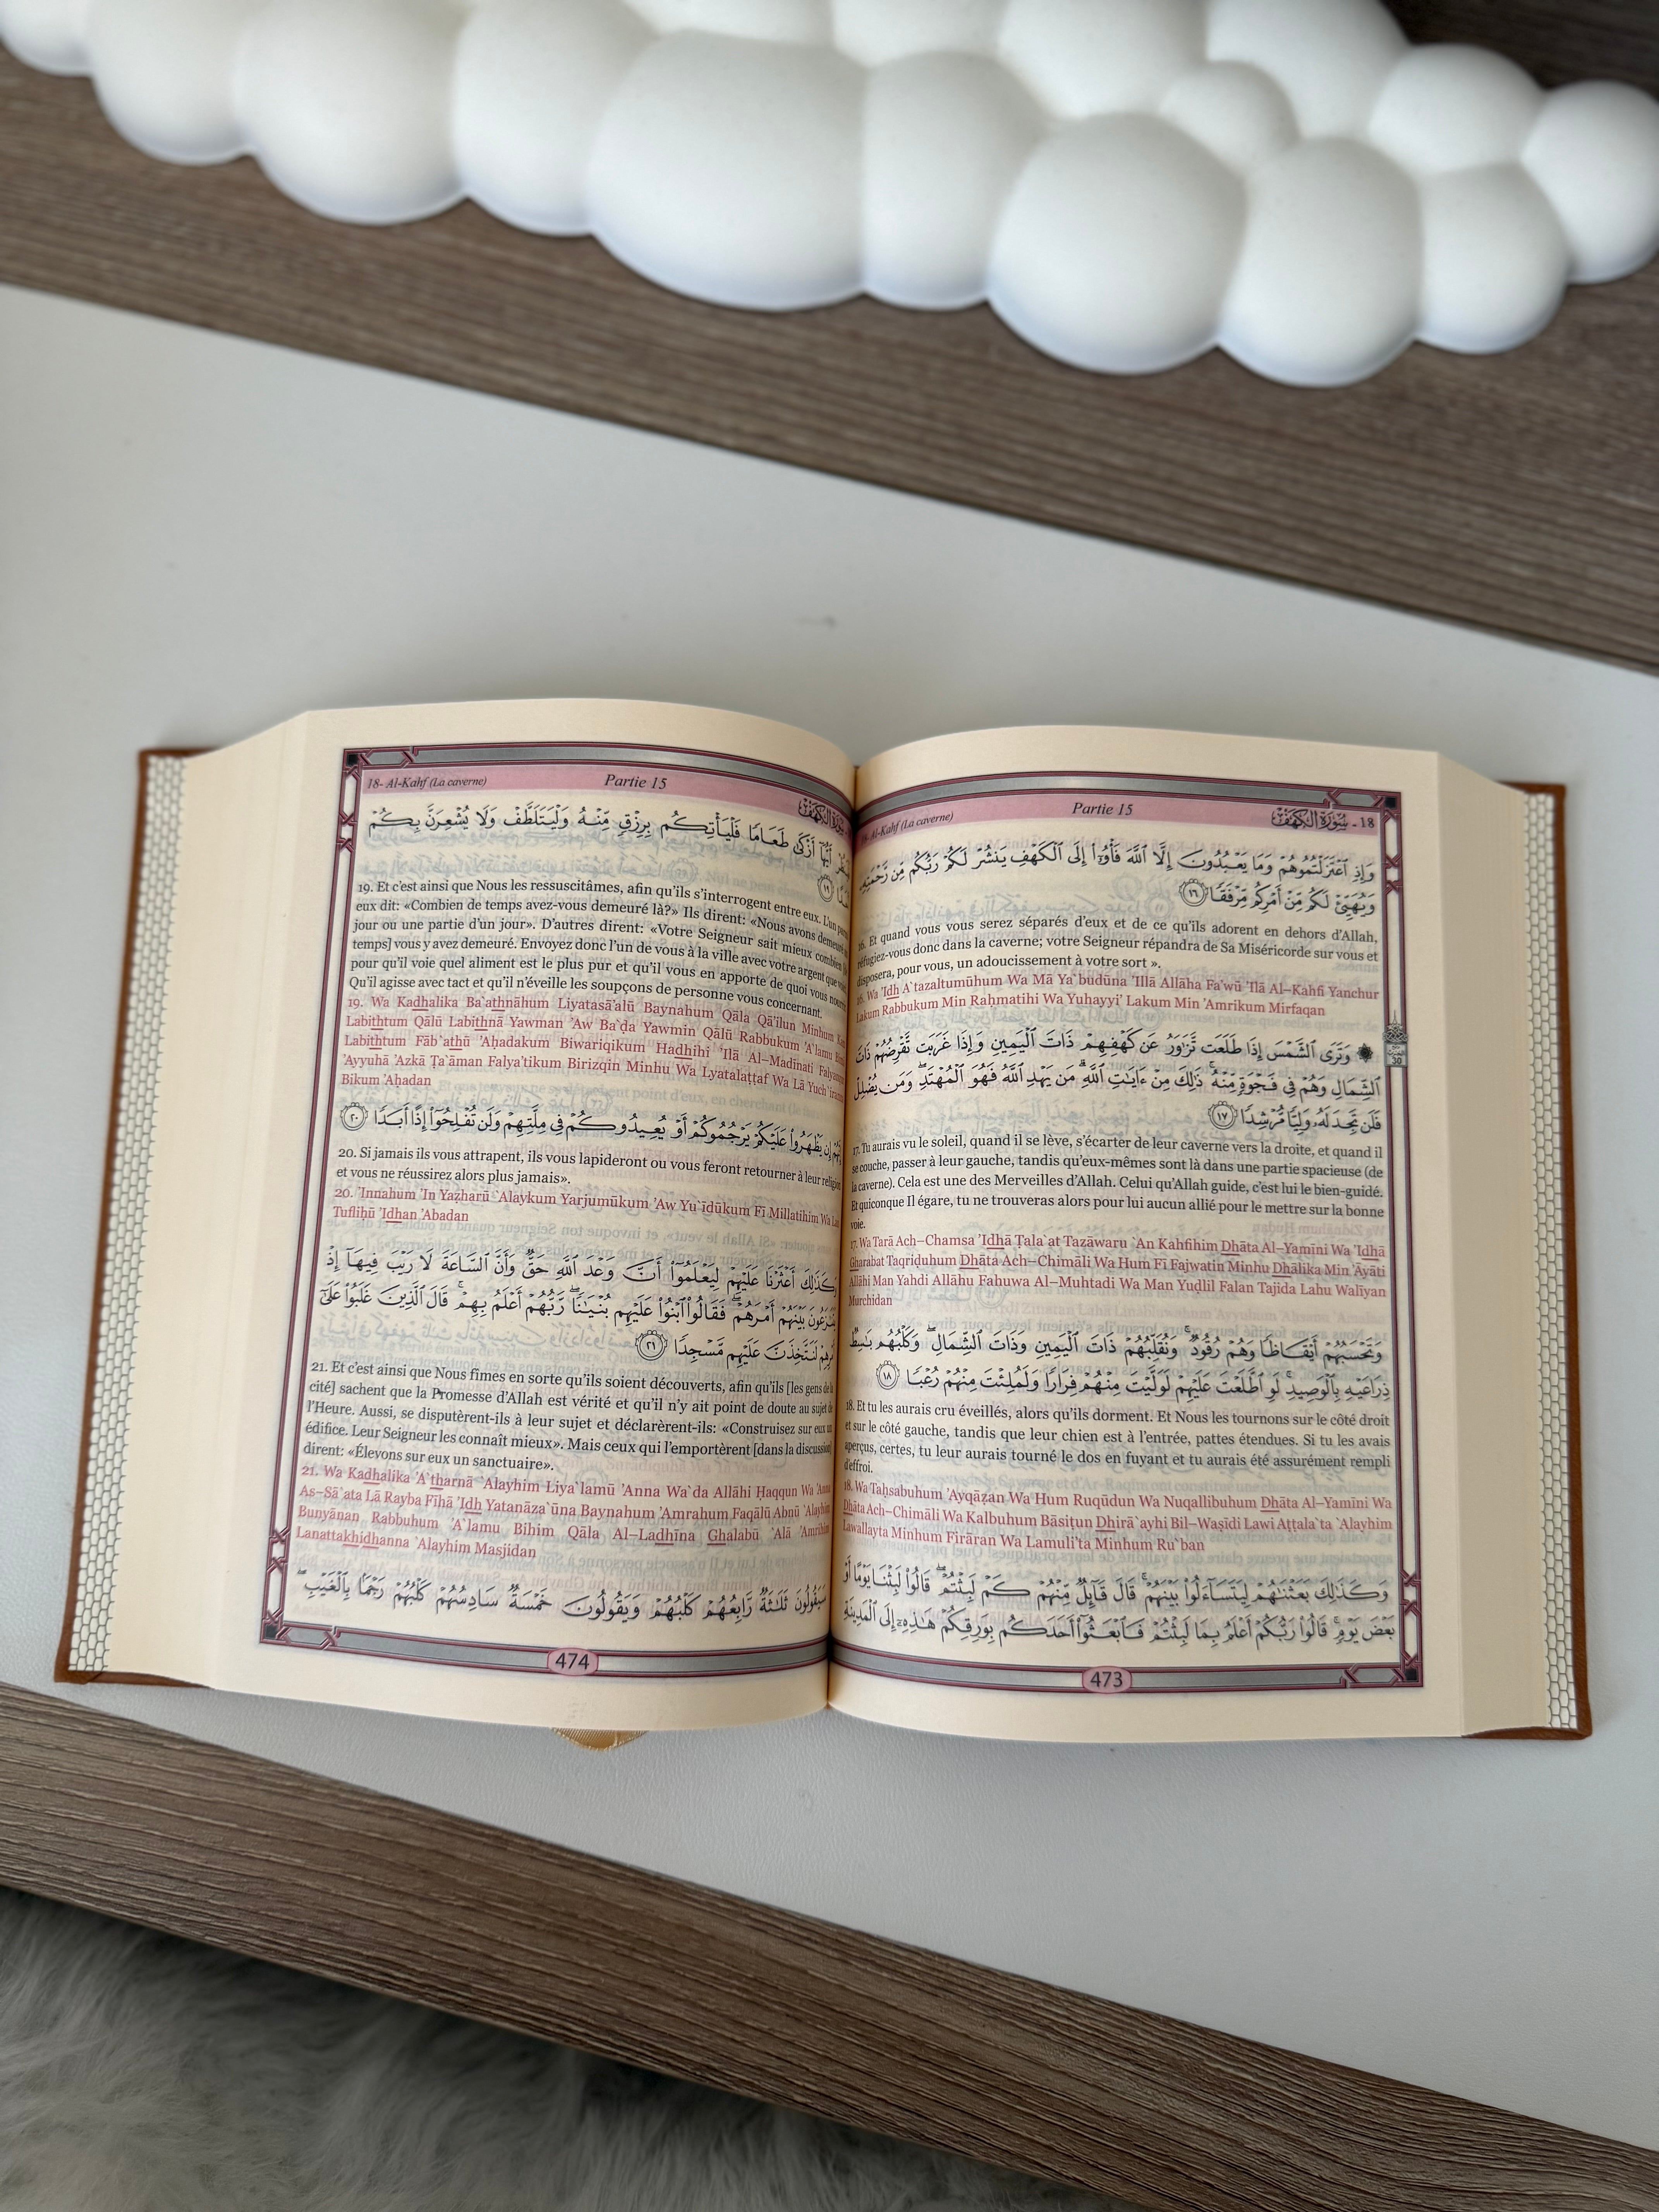 18- Al-Kahf (La caverne) Partie 15 18 - سُورَةُ الكَهْفِ
وَإِذِ ٱعْتَزَلْتُمُوهُمْ وَمَا يَعْبُدُونَ إِلَّا ٱللَّهَ فَأْوُۥٓا۟ إِلَى ٱلْكَهْفِ يَنشُرْ لَكُمْ رَبُّكُم مِّن رَّحْمَتِهِۦ
وَيُهَيِّئْ لَكُم مِّنْ أَمْرِكُم مِّرْفَقًا ١٦
16. Et quand vous vous serez séparés d'eux et de ce qu'ils adorent en dehors d'Allah,
réfugiez-vous donc dans la caverne; votre Seigneur répandra de Sa Miséricorde sur vous et
disposera, pour vous, un adoucissement à votre sort ».
16. Wa 'Idh A`tazaltumūhum Wa Mā Ya`budūna 'Illā Allāha Fa'wū 'Ilā Al–Kahfi Yanchur
Lakum Rabbukum Min Raḥmatihi Wa Yuhayyi' Lakum Min 'Amrikum Mirfaqan
۞ وَتَرَى ٱلشَّمْسَ إِذَا طَلَعَت تَّزَٰوَرُ عَن كَهْفِهِمْ ذَاتَ ٱلْيَمِينِ وَإِذَا غَرَبَت تَّقْرِضُهُمْ ذَاتَ
ٱلشِّمَالِ وَهُمْ فِى فَجْوَةٍ مِّنْهُ ۚ ذَٰلِكَ مِنْ ءَايَٰتِ ٱللَّهِ ۗ مَن يَهْدِ ٱللَّهُ فَهُوَ ٱلْمُهْتَدِ ۖ وَمَن يُضْلِلْ
فَلَن تَجِدَ لَهُۥ وَلِيًّا مُّرْشِدًا ١٧
17. Tu aurais vu le soleil, quand il se lève, s'écarter de leur caverne vers la droite, et quand il
se couche, passer à leur gauche, tandis qu'eux-mêmes sont là dans une partie spacieuse (de
la caverne). Cela est une des Merveilles d'Allah. Celui qu'Allah guide, c'est lui le bien-guidé.
Et quiconque Il égare, tu ne trouveras alors pour lui aucun allié pour le mettre sur la bonne
voie.
17. Wa Tarā Ach–Chamsa 'Idhā Ṭala`at Tazāwaru `An Kahfihim Dhāta Al–Yamīni Wa 'Idhā
Gharabat Taqriḍuhum Dhāta Ach–Chimāli Wa Hum Fī Fajwatin Minhu Dhālika Min 'Āyāti
Allāhi Man Yahdi Allāhu Fahuwa Al–Muhtadi Wa Man Yuḍlil Falan Tajida Lahu Walīyan
Murchidan
وَتَحْسَبُهُمْ أَيْقَاظًا وَهُمْ رُقُودٌ ۚ وَنُقَلِّبُهُمْ ذَاتَ ٱلْيَمِينِ وَذَاتَ ٱلشِّمَالِ ۖ وَكَلْبُهُم بَٰسِطٌ
ذِرَاعَيْهِ بِٱلْوَصِيدِ ۚ لَوِ ٱطَّلَعْتَ عَلَيْهِمْ لَوَلَّيْتَ مِنْهُمْ فِرَارًا وَلَمُلِئْتَ مِنْهُمْ رُعْبًا ١٨
18. Et tu les aurais cru éveillés, alors qu'ils dorment. Et Nous les tournons sur le côté droit
et sur le côté gauche, tandis que leur chien est à l'entrée, pattes étendues. Si tu les avais
aperçus, certes, tu leur aurais tourné le dos en fuyant et tu aurais été assurément rempli
d'effroi.
18. Wa Taḥsabuhum 'Ayqāẓan Wa Hum Ruqūdun Wa Nuqallibuhum Dhāta Al–Yamīni Wa
Dhāta Ach–Chimāli Wa Kalbuhum Bāsiṭun Dhirā`ayhi Bil–Waṣīdi Lawi Aṭṭala`ta `Alayhim
Lawallayta Minhum Firāran Wa Lamuli'ta Minhum Ru`ban
وَكَذَٰلِكَ بَعَثْنَٰهُمْ لِيَتَسَآءَلُوا۟ بَيْنَهُمْ ۚ قَالَ قَآئِلٌ مِّنْهُمْ كَمْ لَبِثْتُمْ ۖ قَالُوا۟ لَبِثْنَا يَوْمًا أَوْ
بَعْضَ يَوْمٍ ۚ قَالُوا۟ رَبُّكُمْ أَعْلَمُ بِمَا لَبِثْتُمْ فَٱبْعَثُوٓا۟ أَحَدَكُم بِوَرِقِكُمْ هَٰذِهِۦٓ إِلَى ٱلْمَدِينَةِ
473
18- Al-Kahf (La caverne) Partie 15 سُورَةُ الكَهْفِ
أَيُّهَآ أَزْكَىٰ طَعَامًا فَلْيَأْتِكُم بِرِزْقٍ مِّنْهُ وَلْيَتَلَطَّفْ وَلَا يُشْعِرَنَّ بِكُمْ
١٩
19. Et c'est ainsi que Nous les ressuscitâmes, afin qu'ils s'interrogent entre eux. L'un parmi
eux dit: «Combien de temps avez-vous demeuré là?» Ils dirent: «Nous avons demeuré un
jour ou une partie d'un jour». D'autres dirent: «Votre Seigneur sait mieux combien
temps] vous y avez demeuré. Envoyez donc l'un de vous à la ville avec votre argent que
pour qu'il voie quel aliment est le plus pur et qu'il vous en apporte de quoi vous nourrir.
Qu'il agisse avec tact et qu'il n'éveille les soupçons de personne vous concernant.
19. Wa Kadhalika Ba`athnāhum Liyatasā'alū Baynahum Qāla Qā'ilun Minhum Kam
Labithtum Qālū Labithnā Yawman 'Aw Ba`ḍa Yawmin Qālū Rabbukum 'A`lamu Bimā
Labithtum Fāb`athū 'Aḥadakum Biwariqikum Hadhihi 'Ilā Al–Madīnati
'Ayyuhā 'Azkā Ṭa`āman Falya'tikum Birizqin Minhu Wa Lyatalaṭṭaf Wa Lā Yuch`iranna
Bikum 'Aḥadan
إِن يَظْهَرُوا۟ عَلَيْكُمْ يَرْجُمُوكُمْ أَوْ يُعِيدُوكُمْ فِى مِلَّتِهِمْ وَلَن تُفْلِحُوٓا۟ إِذًا أَبَدًا ٢٠
20. Si jamais ils vous attrapent, ils vous lapideront ou vous feront retourner à leur religion
et vous ne réussirez alors plus jamais».
20. 'Innahum 'In Yaẓharū `Alaykum Yarjumūkum 'Aw Yu`īdūkum Fī Millatihim Wa Lan
Tufliḥū 'Idhan 'Abadan
وَكَذَٰلِكَ أَعْثَرْنَا عَلَيْهِمْ لِيَعْلَمُوٓا۟ أَنَّ وَعْدَ ٱللَّهِ حَقٌّ وَأَنَّ ٱلسَّاعَةَ لَا رَيْبَ فِيهَآ إِذْ
يَتَنَٰزَعُونَ بَيْنَهُمْ أَمْرَهُمْ ۖ فَقَالُوا۟ ٱبْنُوا۟ عَلَيْهِم بُنْيَٰنًا ۖ رَّبُّهُمْ أَعْلَمُ بِهِمْ ۚ قَالَ ٱلَّذِينَ غَلَبُوا۟ عَلَىٰٓ
أَمْرِهِمْ لَنَتَّخِذَنَّ عَلَيْهِم مَّسْجِدًا ٢١
21. Et c'est ainsi que Nous fîmes en sorte qu'ils soient découverts, afin qu'ils [les gens de la
cité] sachent que la Promesse d'Allah est vérité et qu'il n'y ait point de doute au sujet de
l'Heure. Aussi, se disputèrent-ils à leur sujet et déclarèrent-ils: «Construisez sur eux un
édifice. Leur Seigneur les connaît mieux». Mais ceux qui l'emportèrent [dans la discussion]
dirent: «Élevons sur eux un sanctuaire».
21. Wa Kadhalika 'A`tharnā `Alayhim Liya`lamū 'Anna Wa`da Allāhi Ḥaqqun Wa 'Anna
As–Sā`ata Lā Rayba Fīhā 'Idh Yatanāza`ūna Baynahum 'Amrahum Faqālū Abnū `Alayhim
Bunyānan Rabbuhum 'A`lamu Bihim Qāla Al–Ladhīna Ghalabū `Alā 'Amrihim
Lanattakhidhanna `Alayhim Masjidan
سَيَقُولُونَ ثَلَٰثَةٌ رَّابِعُهُمْ كَلْبُهُمْ وَيَقُولُونَ خَمْسَةٌ سَادِسُهُمْ كَلْبُهُمْ رَجْمًۢا بِٱلْغَيْبِ ۖ
474